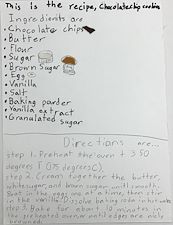 This is the recipe, Chocolate chip cookies
Ingredients are
• Chocolate chips
• Butter
• Flour
• Sugar
• Brown Sugar
• Egg
• Vanilla
• Salt
• Baking parder
• Vanilla extract
• Granulated sugar
Directions are...
step 1. Preheat the oven to 350
degrees F (175 degrees C).
step 2. Cream together the butter,
white sugar, and brown sugar until smooth.
Beat in the eggs one at a time, then stir
in the vanilla. Dissolve baking soda in hot
step 3. Bake about 10 minutes in
the preheated oven or until edges are nicely
browned.